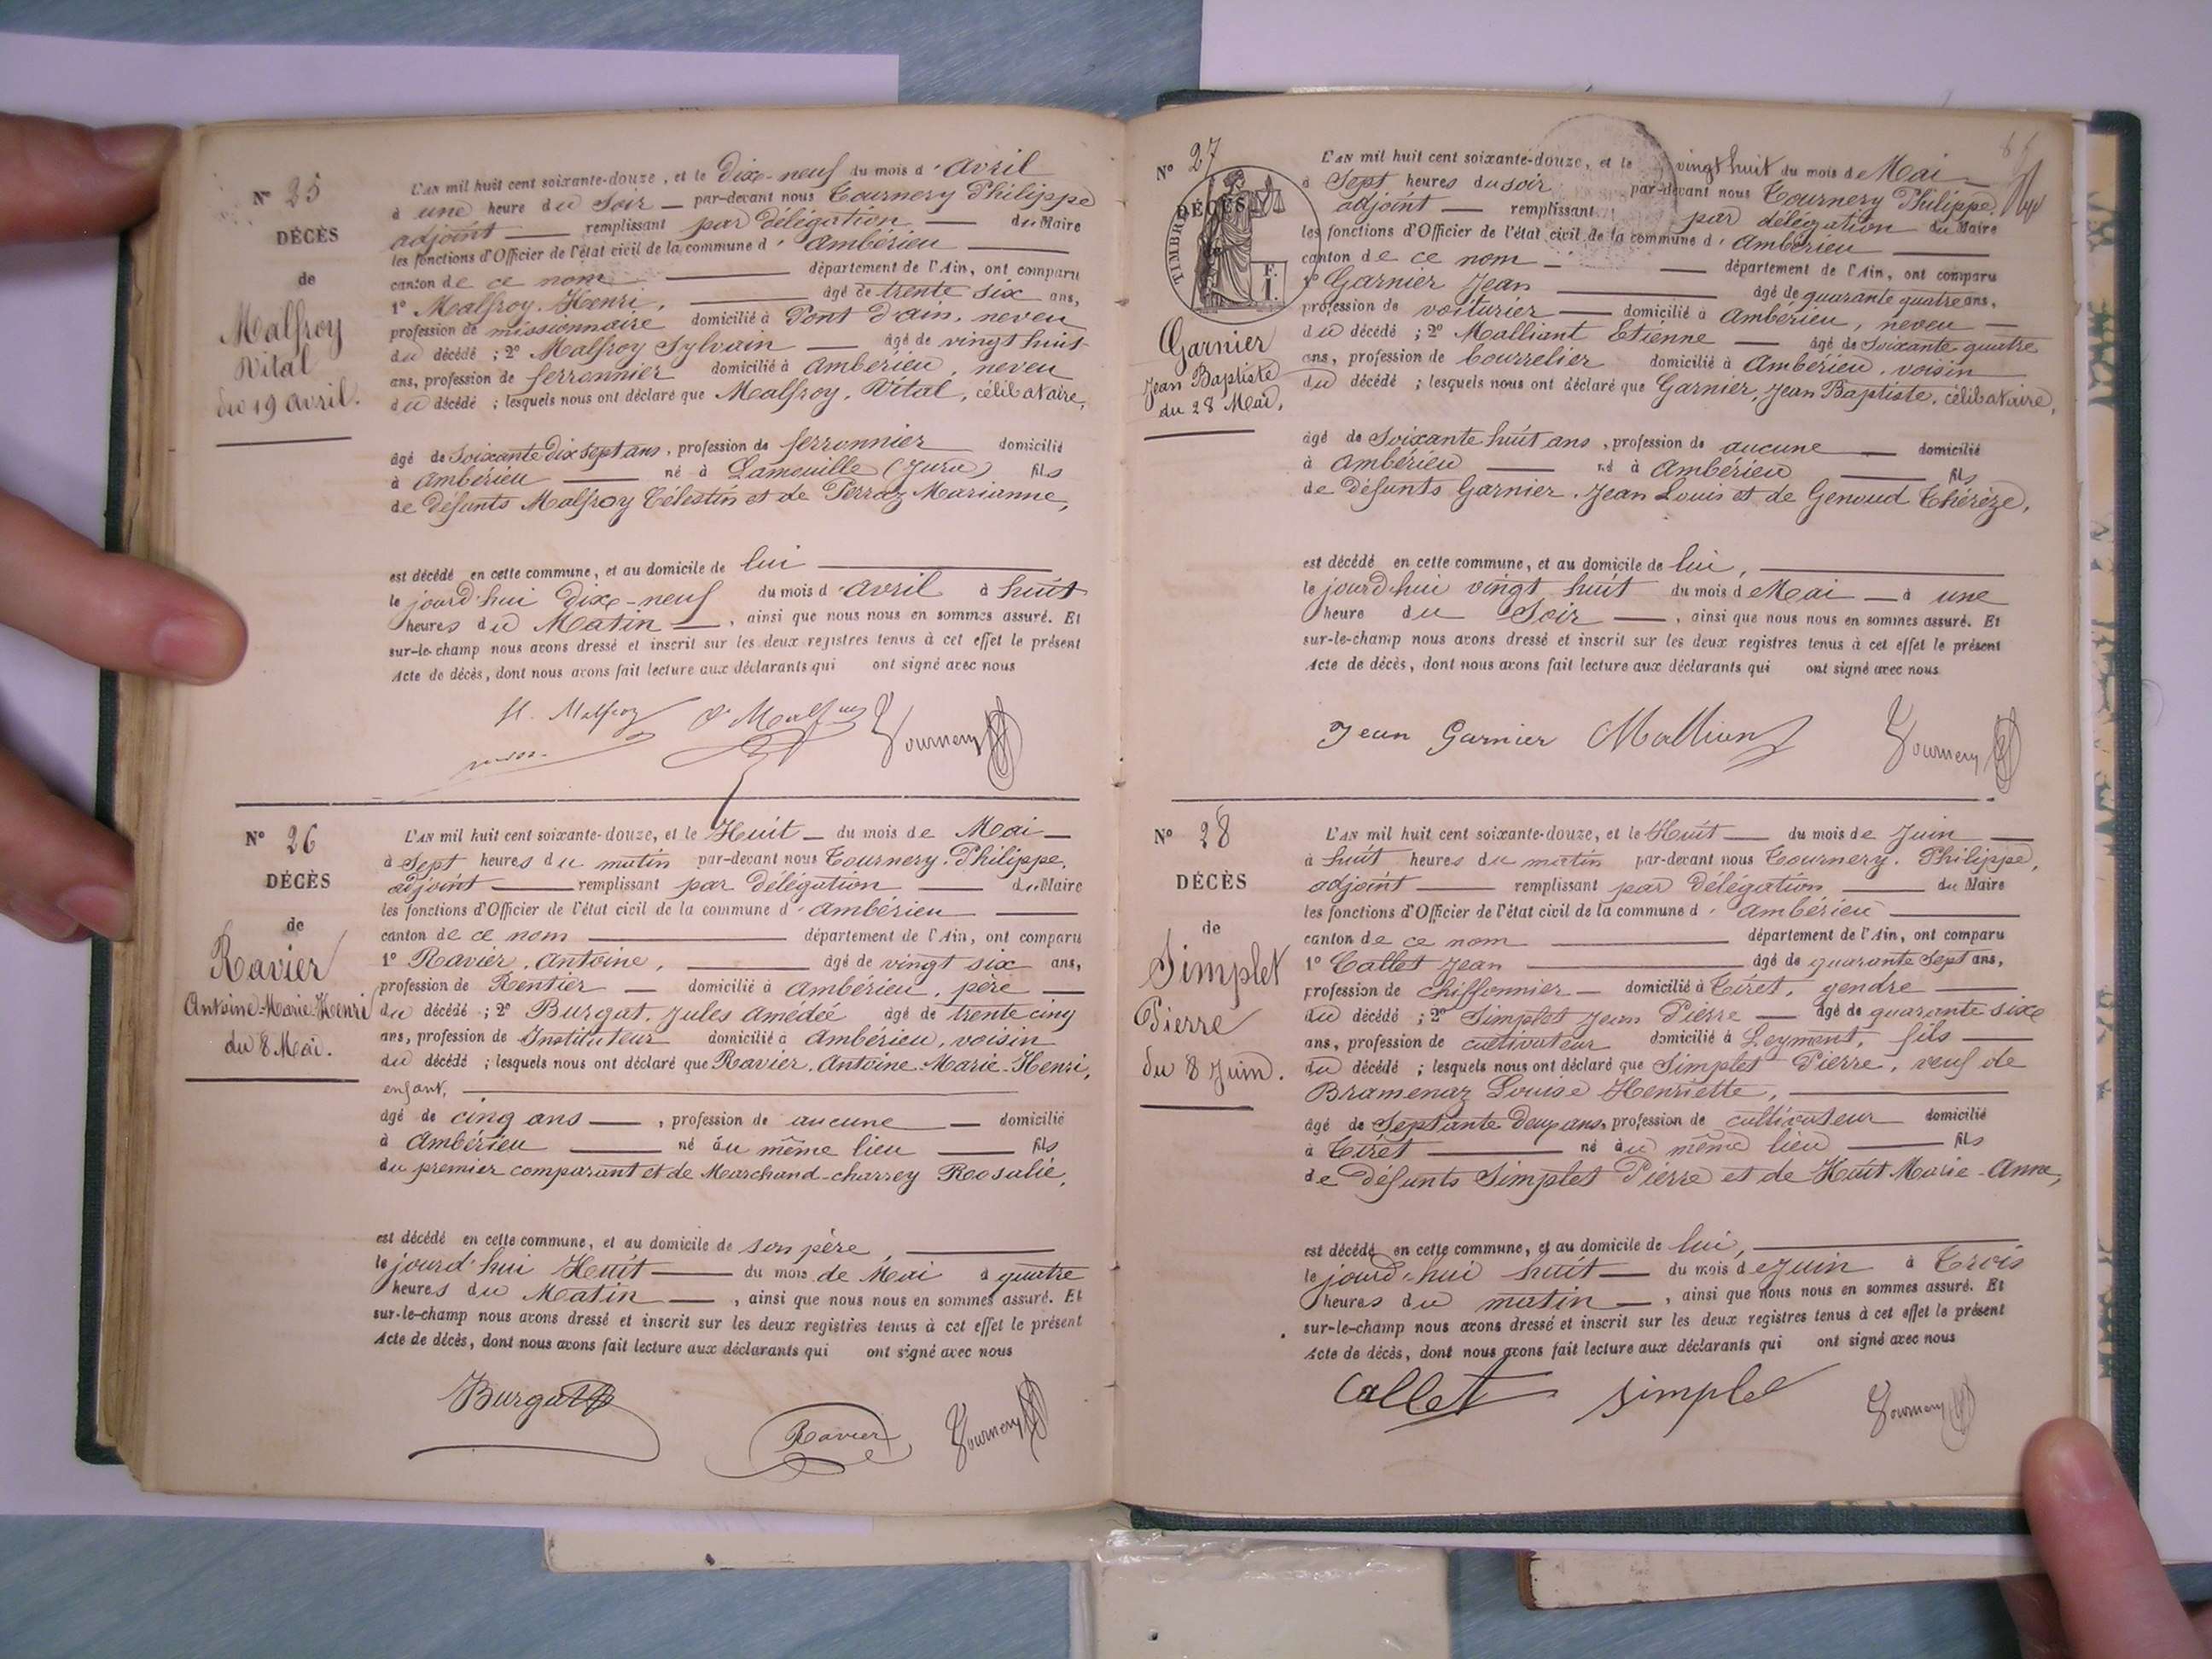 Nº 25
DÉCÈS
de
Malfroy
Vital
du 19 avril.
L'AN mil huit cent soixante-douze, et le Dixe-neuf du mois d'Avril
à une heure du Soir — par-devant nous Tournery Philippe
adjoint — remplissant par délégation — du Maire
les fonctions d'Officier de l'état civil de la commune d'Ambérieu —
canton de ce nom — département de l'Ain, ont comparu
1º Malfroy. Henri, — âgé de trente six ans,
profession de missionnaire domicilié à Pont d'ain, neveu
du décédé ; 2º Malfroy Sylvain — âgé de vingt huit
ans, profession de ferronnier domicilié à Ambérieu, neveu
du décédé ; lesquels nous ont déclaré que Malfroy, Vital, célibataire,
âgé de Soixante dix sept ans, profession de ferronnier domicilié
à Ambérieu — né à Lamouille (Jura) fils
de défunts Malfroy Célestin et de Perraz Marianne,
est décédé en cette commune, et au domicile de lui —
le jourd'hui dixe-neuf du mois d'avril à huit
heures du Matin —, ainsi que nous nous en sommes assuré. Et
sur-le-champ nous avons dressé et inscrit sur les deux registres tenus à cet effet le présent
Acte de décès, dont nous avons fait lecture aux déclarants qui ont signé avec nous
H. Malfroy Tournery
Nº 26
DÉCÈS
de
Ravier
Antoine-Marie-Henri
du 8 Mai.
L'AN mil huit cent soixante-douze, et le Huit — du mois de Mai —
à Sept heures du matin par-devant nous Tournery. Philippe,
adjoint — remplissant par délégation — du Maire
les fonctions d'Officier de l'état civil de la commune d'Ambérieu —
canton de ce nom — département de l'Ain, ont comparu
1º Ravier, Antoine, — âgé de vingt six ans,
profession de Rentier — domicilié à Ambérieu, père —
du décédé ; 2º Burgat, Jules Amédée âgé de trente cinq
ans, profession de Instituteur domicilié à Ambérieu, voisin
du décédé ; lesquels nous ont déclaré que Ravier, Antoine-Marie-Henri,
enfant, —
âgé de cinq ans —, profession de aucune — domicilié
à Ambérieu — né au même lieu — fils
du premier comparant et de Marchand-charrey Rosalie,
est décédé en cette commune, et au domicile de son père, —
le jourd'hui Huit — du mois de Mai à quatre
heures du Matin —, ainsi que nous nous en sommes assuré. Et
sur-le-champ nous avons dressé et inscrit sur les deux registres tenus à cet effet le présent
Acte de décès, dont nous avons fait lecture aux déclarants qui ont signé avec nous
Burgat Ravier Tournery
Nº 27
TIMBRE
DÉCÈS
Garnier
Jean Baptiste
du 28 Mai,
L'AN mil huit cent soixante-douze, et le vingt huit du mois de Mai —
à Sept heures du soir par-devant nous Tournery Philippe,
adjoint — remplissant par délégation du Maire
les fonctions d'Officier de l'état civil de la commune d'Ambérieu —
canton de ce nom — département de l'Ain, ont comparu
1º Garnier Jean — âgé de quarante quatre ans,
profession de voiturier — domicilié à Ambérieu, neveu —
du décédé ; 2º Malliant Etienne — âgé de Soixante quatre
ans, profession de bourrelier domicilié à Ambérieu, voisin
du décédé ; lesquels nous ont déclaré que Garnier, Jean Baptiste, célibataire,
âgé de Soixante huit ans, profession de aucune — domicilié
à Ambérieu — né à Ambérieu — fils
de défunts Garnier, Jean Louis et de Genoud Thérèze,
est décédé en cette commune, et au domicile de lui, —
le jourd'hui vingt huit du mois de Mai — à une
heure du Soir —, ainsi que nous nous en sommes assuré. Et
sur-le-champ nous avons dressé et inscrit sur les deux registres tenus à cet effet le présent
Acte de décès, dont nous avons fait lecture aux déclarants qui ont signé avec nous
Jean Garnier Malliant Tournery
Nº 28
DÉCÈS
de
Simplet
Pierre
du 8 Juin.
L'AN mil huit cent soixante-douze, et le Huit — du mois de Juin —
à huit heures du matin par-devant nous Tournery. Philippe,
adjoint — remplissant par délégation — du Maire
les fonctions d'Officier de l'état civil de la commune d'Ambérieu —
canton de ce nom — département de l'Ain, ont comparu
1º Callet Jean — âgé de quarante sept ans,
profession de chiffonnier — domicilié à Tiret, gendre —
du décédé ; 2º Simplet Jean Pierre — âgé de quarante sixe
ans, profession de cultivateur domicilié à Leyment, fils —
du décédé ; lesquels nous ont déclaré que Simplet Pierre, veuf de
Bramenaz Louise Henriette, —
âgé de Septante deux ans, profession de cultivateur domicilié
à Tiret — né au même lieu — fils
de défunts Simplet Pierre et de Huit Marie-Anne,
est décédé en cette commune, et au domicile de lui, —
le jourd'hui huit — du mois de Juin à Trois
heures du matin —, ainsi que nous nous en sommes assuré. Et
sur-le-champ nous avons dressé et inscrit sur les deux registres tenus à cet effet le présent
Acte de décès, dont nous avons fait lecture aux déclarants qui ont signé avec nous
Callet simplet Tournery